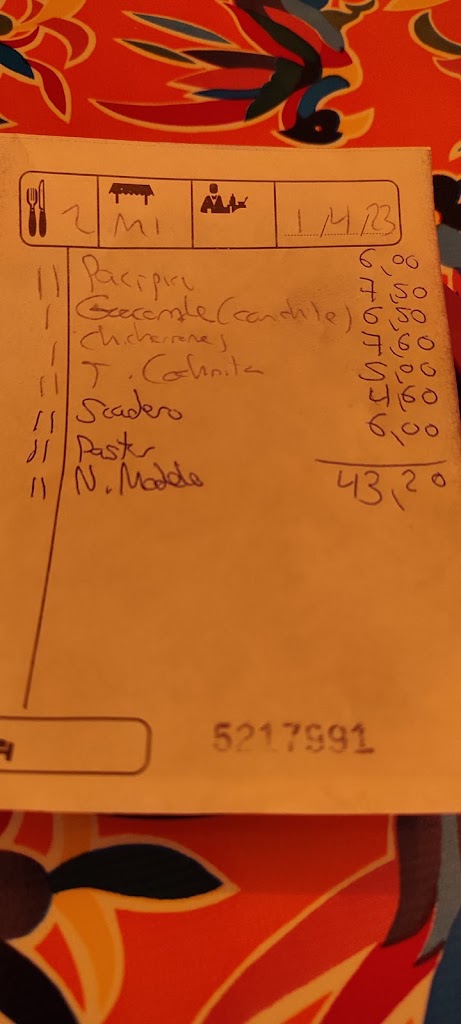 2 M1 1/4/23
11 Pacipicu 6,00
1 Guacamole (canchite) 7,50
1 chicharrones 6,50
11 T. Cochinita 7,60
11 Scadero 5,00
11 Pastor 4,60
11 N. Modelo 6,00
43,20
5217991